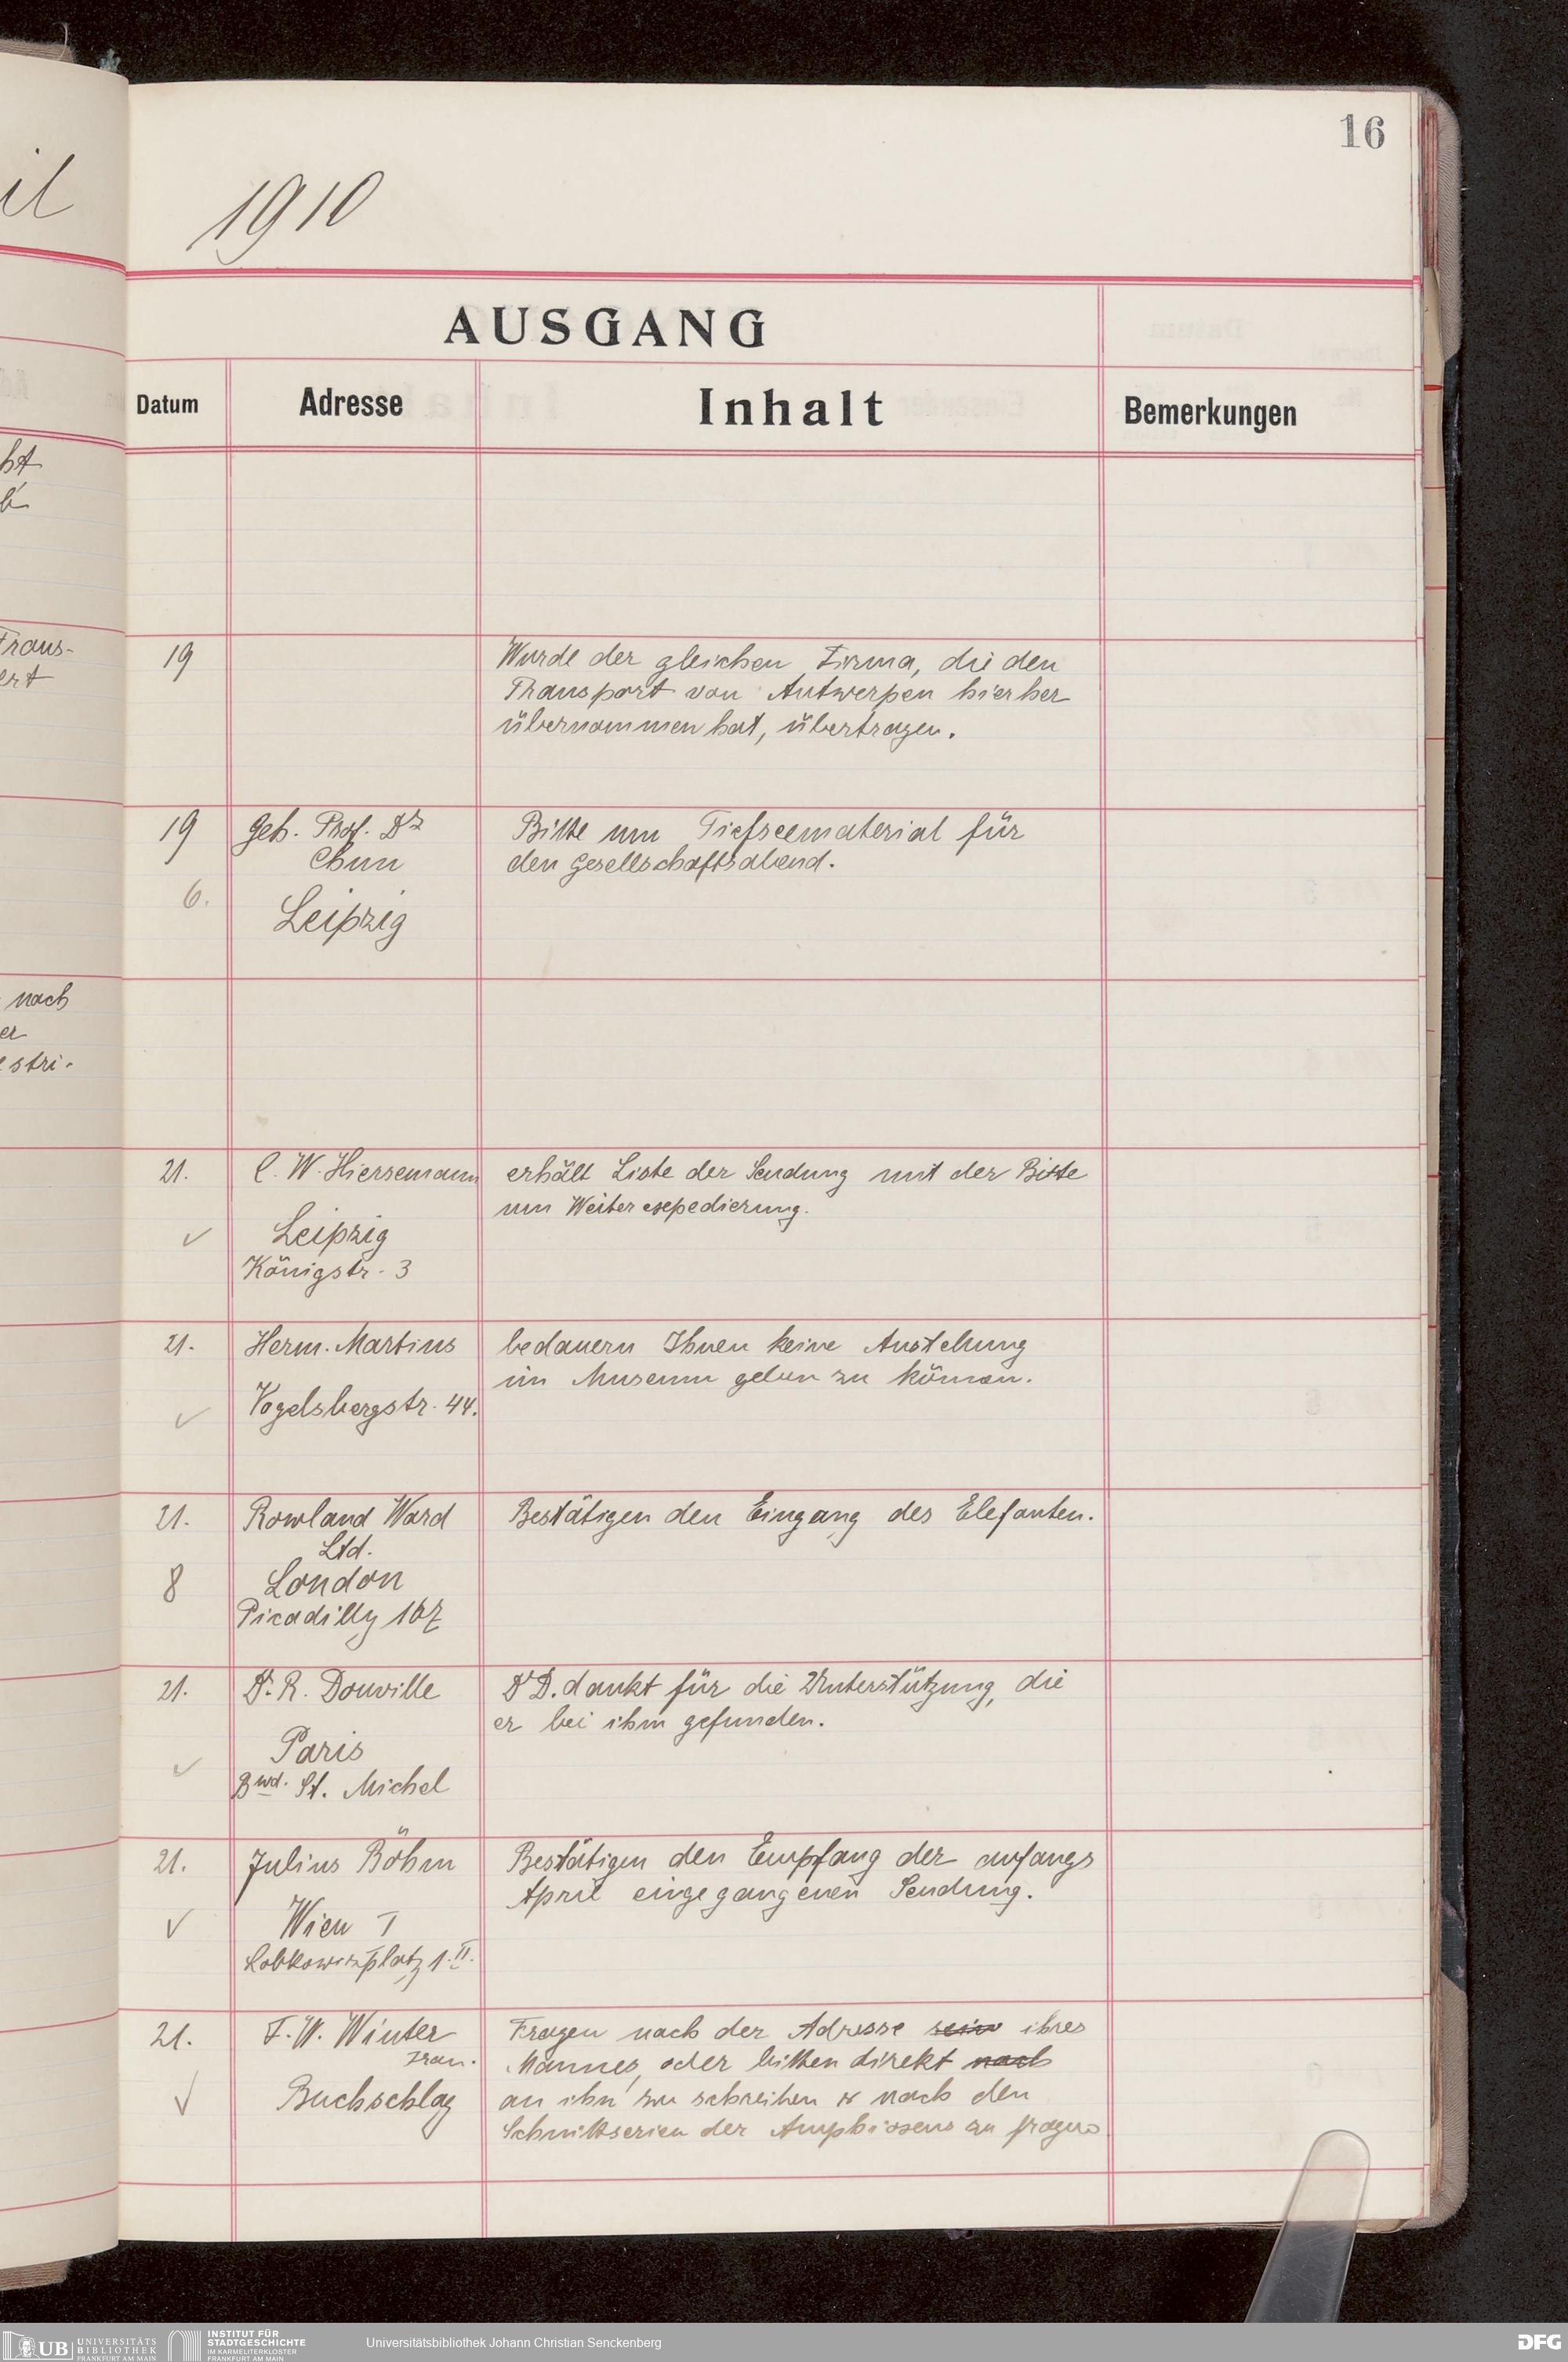 il
16
1910
AUSGANG
Datum
Adresse
Inhalt
Bemerkungen
ht
Trans-
ert
nach
er
estri-
19
Wurde der gleichen Firma, die den
Transport von Antwerpen hierher
übernommen hat, übertragen.
19
Geh. Prof. Dr
Chun
Leipzig
6.
Bitte um Tiefseematerial für
den Gesellschaftsabend.
21.
C. W. Hiersemann
Leipzig
Königstr. 3
erhält Liste der Sendung mit der Bitte
um Weiterexpedierung.
21.
Herm. Martins
Vogelsbergstr. 44.
bedauern Ihnen keine Anstellung
im Museum geben zu können.
21.
8
Rowland Ward
Ltd.
London
Picadilly 167
Bestätigen den Eingang des Elefanten.
21.
Dr. R. Douville
Paris
Bwd. St. Michel
Dr D. dankt für die Unterstützung, die
er bei ihm gefunden.
21.
Julius Böhm
Wien I
Lobkowitzplatz 1. II.
Bestätigen den Empfang der anfangs
April eingegangenen Sendung.
21.
F. W. Winter
Frau.
Buchschlag
Fragen nach der Adresse sein ihres
Mannes, oder bitten direkt nach
an ihn zu schreiben & nach den
Schnittserien der zu fragen
UB UNIVERSITÄTS
BIBLIOTHEK
FRANKFURT AM MAIN
INSTITUT FÜR
STADTGESCHICHTE
IM KARMELITERKLOSTER
FRANKFURT AM MAIN
Universitätsbibliothek Johann Christian Senckenberg
DFG